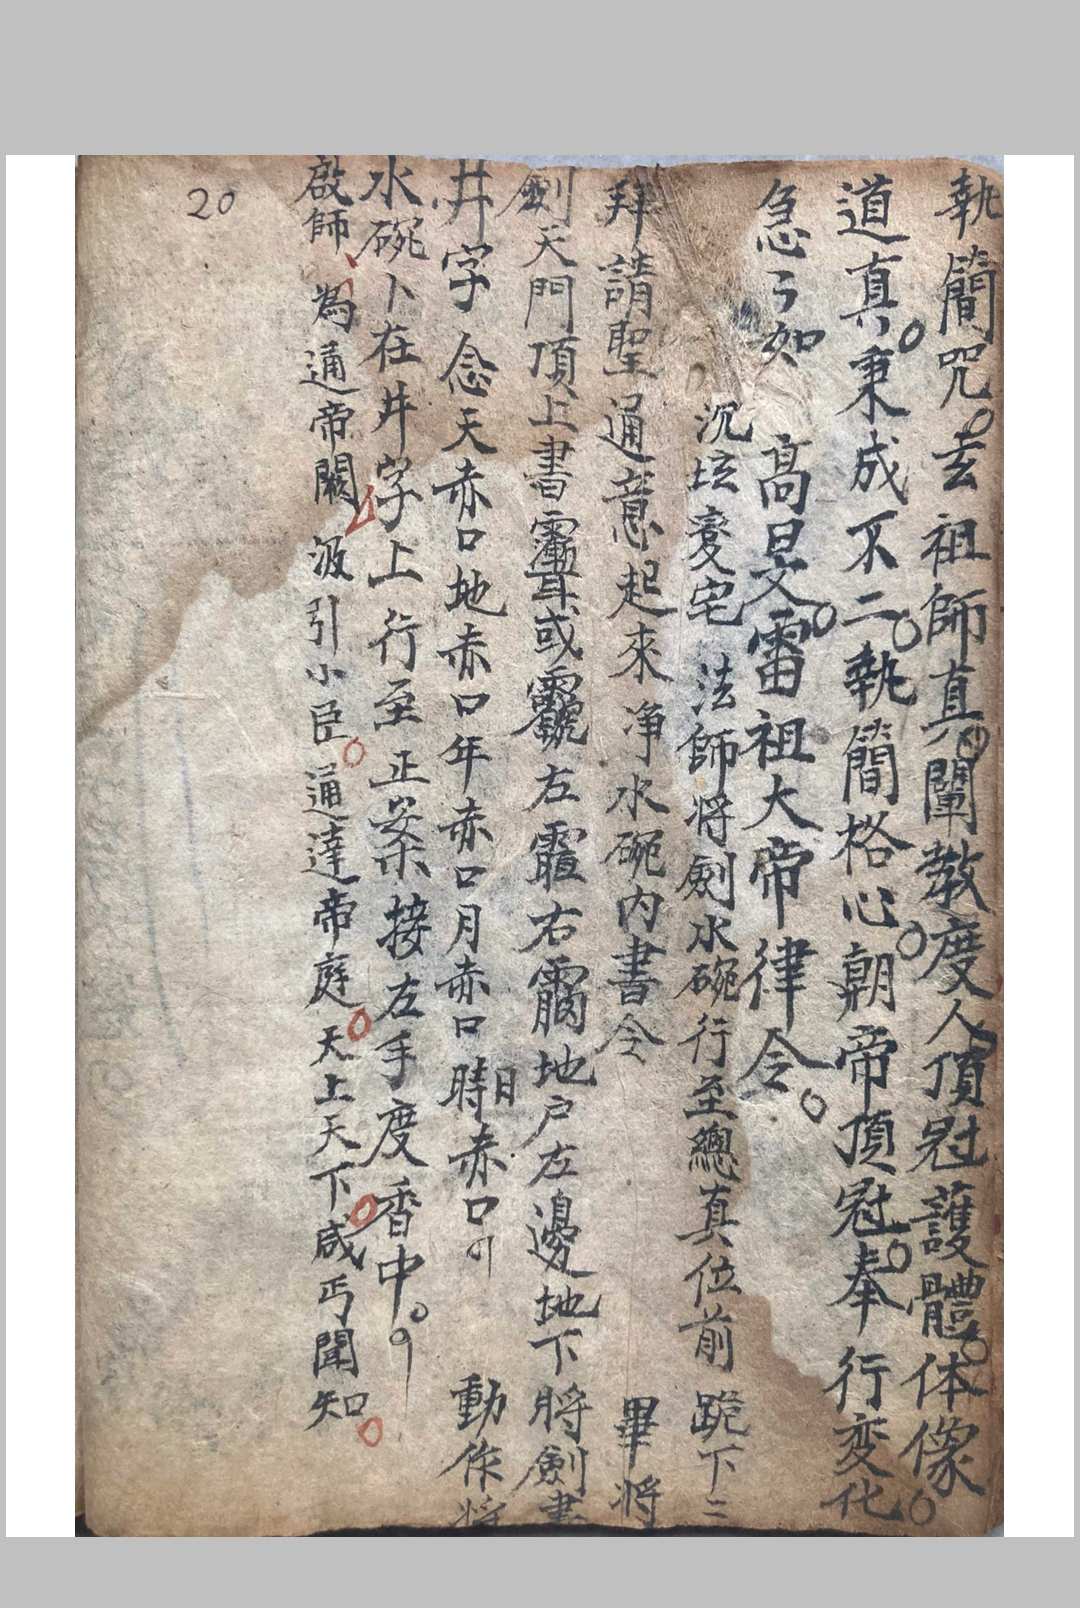 執簡咒。玄祖師真。闡教度人頂冠護體。体像。
道真。秉成不二。執簡格心。朝帝頂冠。奉行変化
急〻如 高旻。雷祖大帝律令。
沉垓 宅 法師将劍水碗行至總真位前 跪下三
拜請聖通意起來净水碗内書令 畢将
劍天門頂上書 或 左 右 地户左邊地下将劍書
井字念天赤口地赤口年赤口月赤口日時赤口 動作将
水碗卜在井字上行至正案接左手度香中。
啟師、為通帝闕 汲引小臣。通達帝庭。天上天下。咸丐聞知。
20